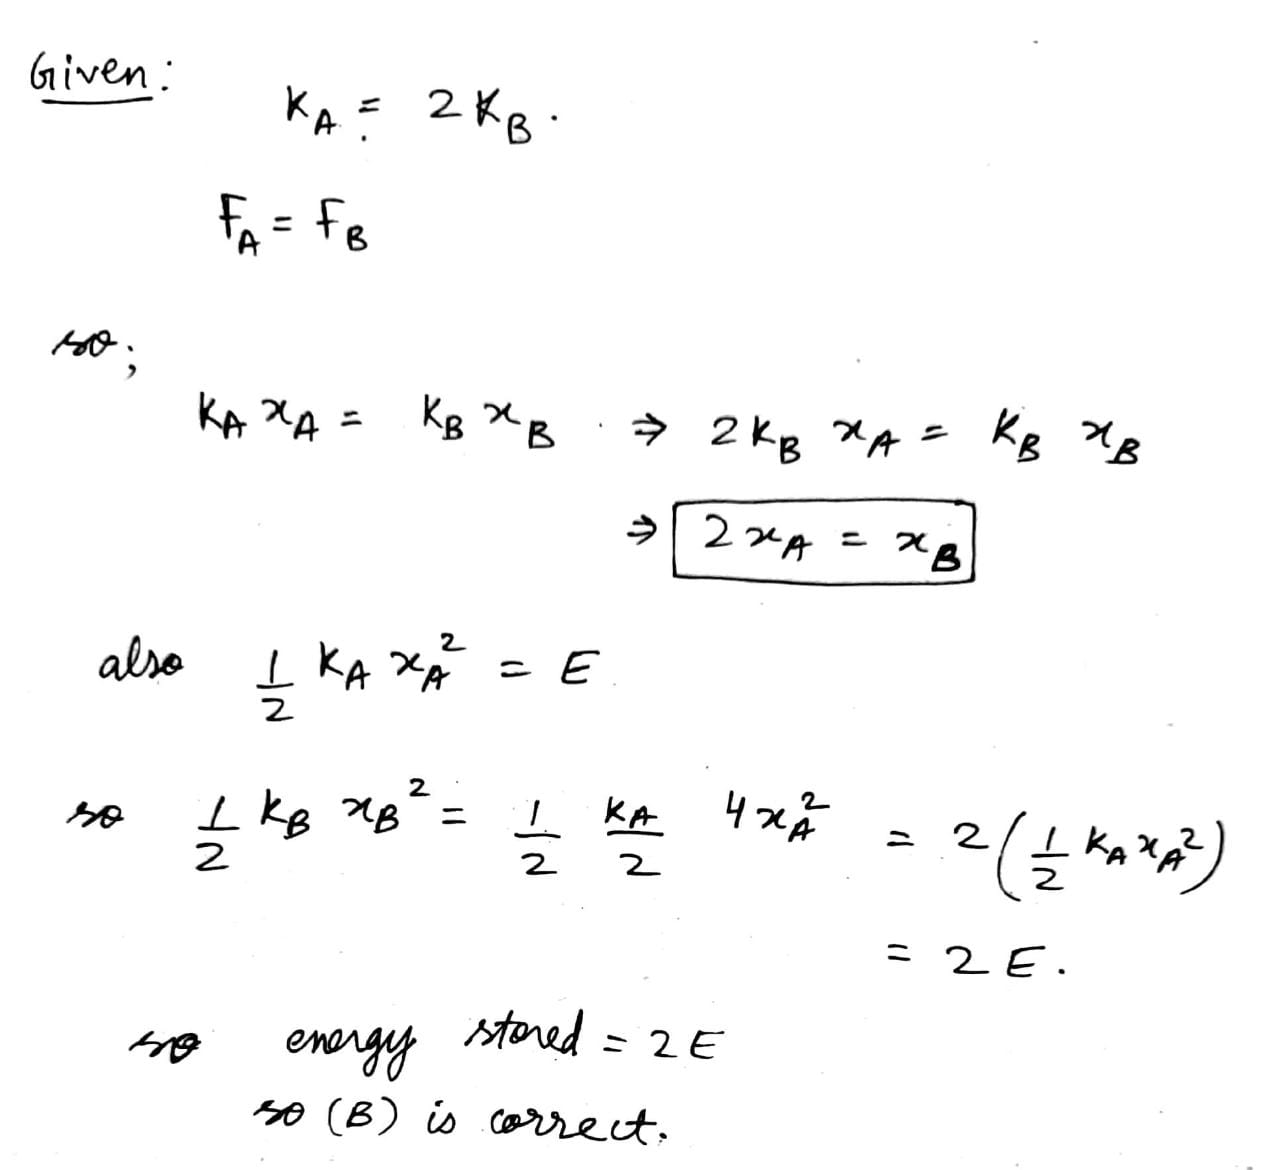 Given:
K_A = 2 K_B.
F_A = F_B
so;
K_A x_A = K_B x_B ⇒ 2 K_B x_A = K_B x_B
⇒ 2 x_A = x_B
also 1/2 K_A x_A^2 = E
so 1/2 K_B x_B^2 = 1/2 K_A/2 4 x_A^2 = 2 (1/2 K_A x_A^2)
= 2 E.
so energy stored = 2 E
so (B) is correct.